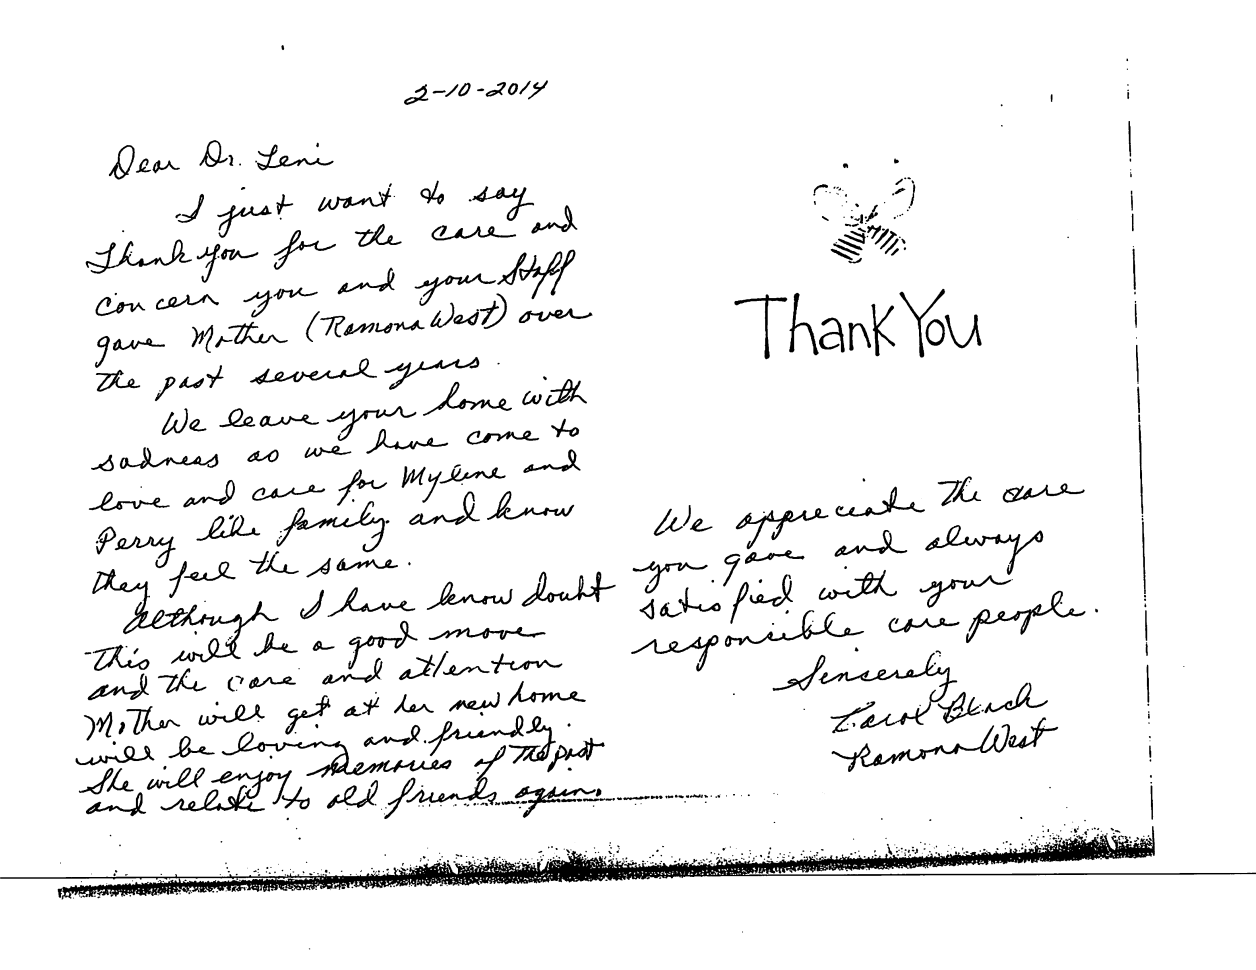 2-10-2014
Dear Dr. Leni
I just want to say
Thank you for the care and
concern you and your Staff
gave Mother (Ramona West) over
the past several years.
We leave your home with
sadness as we have come to
love and care for Mylene and
Perry like family and know
they feel the same.
Although I have know doubt
this will be a good move
and the care and attention
Mother will get at her new home
will be loving and friendly.
She will enjoy memories of the past
and relate to old friends again.
Thank You
We appreciate the care
you gave and always
satisfied with your
responsible care people.
Sincerely
Carol Black
Ramona West